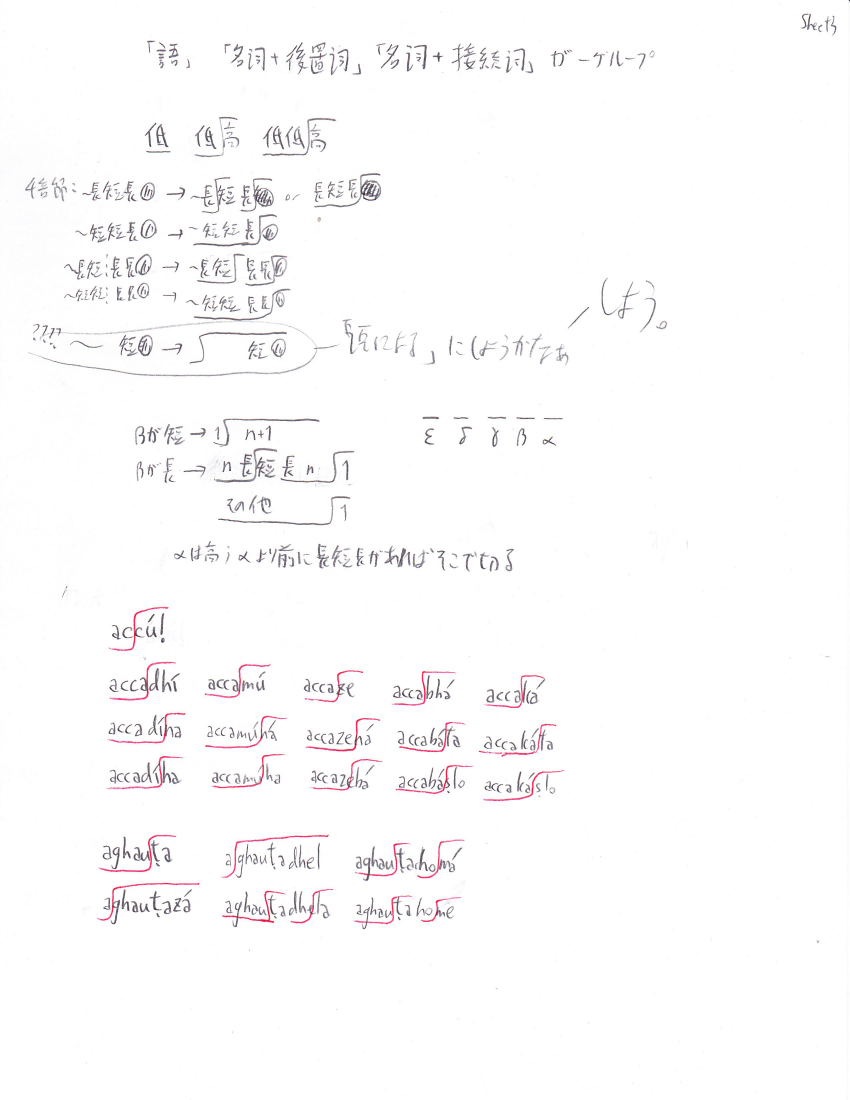 Sheet3
「語」 「名詞+後置詞」「名詞+接続詞」 が一グループ
低 低高 低低高
4音節: ~長短長 → ~長短長 or 長短長
~短短長 → ~短短長
~長短長長 → ~長短長長
~短短長長 → ~短短長長
???? ~ 短 → 短 頭による」にしようかなぁ しよう。
βが短 → 1 n+1 ε δ γ β α
βが長 → n 長短長 n 1
その他 1
αは高; αより前に長短長があればそこで切る
accú!
accadhí accamú accaze accabhá accaká
accadíha accamúhá accazehá accabáṭa accakáṭa
accadíha accamúha accazebá accabáṣlo accakáṣlo
aghauṭa aghauṭadhel aghauṭachomá
aghauṭazá aghauṭadhela aghauṭahomé